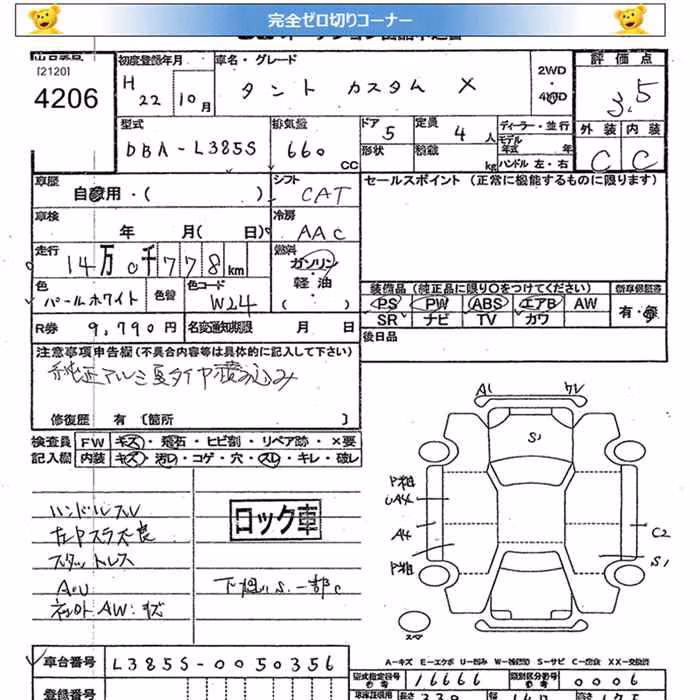 完全ゼロ切りコーナー
[2120]
4206
初度登録年月
H 22 10月
車名・グレード
タント カスタム X
2WD
・
4WD
評価点
3.5
外装 内装
C C
型式
DBA-L385S
排気量
660 CC
ドア 5
形状
定員 4人
積載 kg
ディーラー・並行
モデル年式 年
ハンドル 左・右
車歴
自家用・( )
シフト
CAT
セールスポイント (正常に機能するものに限ります)
車検
年 月( 日)
冷房
AAC
走行
14万0千778km
燃料
ガソリン
・
軽油
・
( )
色
パールホワイト
色替
色コード
W24
装備品 (純正品に限り〇をつけてください)
PS PW ABS エアB AW
SR ナビ TV カワ
新車保証書
有・無
R券 9,790円
名変通知期限 月 日
後日品
注意事項申告欄(不具合内容等は具体的に記入して下さい)
純正アルミ夏タイヤ積み込み
修復歴 有 〔箇所 〕
検査員
記入欄
FW キズ・飛石・ヒビ割・リペア跡・×要
内装 キズ・汚レ・コゲ・穴・スレ・キレ・破レ
ハンドルスレ
左Pスラ不良
スタッドレス
ロック車
下廻りS.一部C
A1
S1
P粗
UA4
A4
P粗
C2
S1
スペア
A-キズ E-エクボ U-凹み W-補修跡 S-サビ C-腐食 XX-交換済
車台番号
L385S-0050356
型式指定番号
参考
16666
類別区分番号
参考
0006
登録番号
長さ
339
幅
147
高さ
175